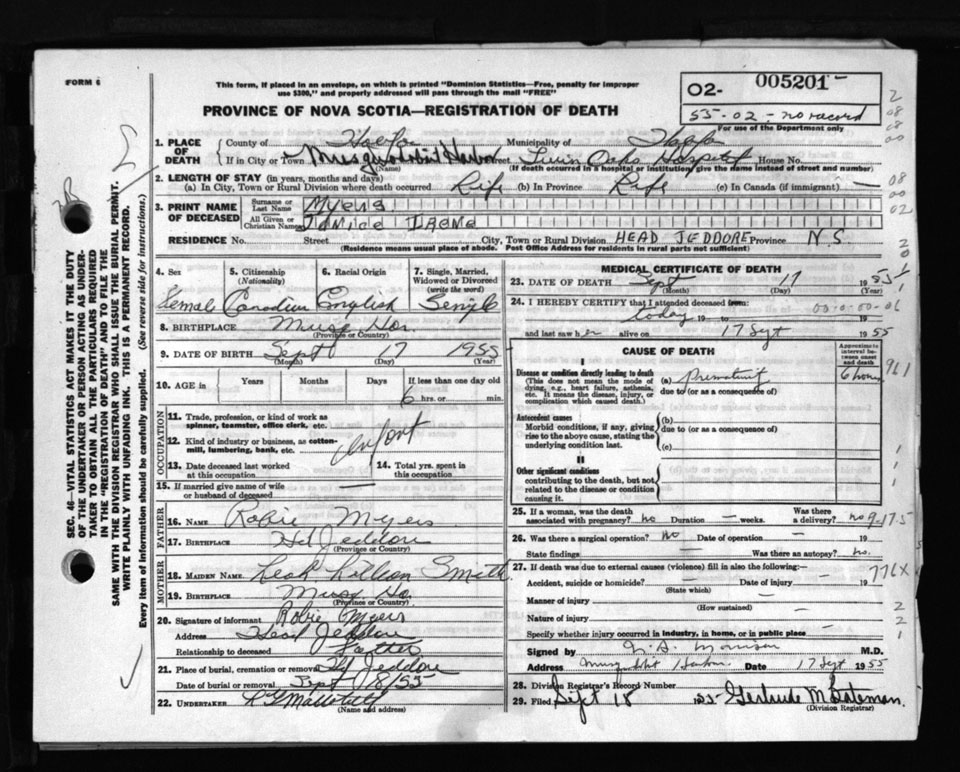 FORM 6
This form, if placed in an envelope, on which is printed "Dominion Statistics—Free, penalty for improper
use $300," and properly addressed will pass through the mail "FREE"
PROVINCE OF NOVA SCOTIA—REGISTRATION OF DEATH
02- 005201
55-02 - no record
For use of the Department only
SEC. 46—VITAL STATISTICS ACT MAKES IT THE DUTY
OF THE UNDERTAKER OR PERSON ACTING AS UNDER-
TAKER TO OBTAIN ALL THE PARTICULARS REQUIRED
IN THE "REGISTRATION OF DEATH" AND TO FILE THE
SAME WITH THE DIVISION REGISTRAR WHO SHALL ISSUE THE BURIAL PERMIT.
WRITE PLAINLY WITH UNFADING INK. THIS IS A PERMANENT RECORD.
Every item of information should be carefully supplied. (See reverse side for instructions.)
1. PLACE OF DEATH
County of Halifax Municipality of Halifax
If in City or Town Musquodoboit Harbor Street Twin Oaks Hospital House No.
(Name) (If death occurred in a hospital or institution, give the name instead of street and number)
2. LENGTH OF STAY (in years, months and days)
(a) In City, Town or Rural Division where death occurred Life (b) In Province Life (c) In Canada (if immigrant) —
3. PRINT NAME OF DECEASED
Surname or Last Name Myers
All Given or Christian Names Janice Irene
RESIDENCE No. Street City, Town or Rural Division HEAD JEDDORE Province N.S.
(Residence means usual place of abode. Post Office Address for residents in rural parts not sufficient)
4. Sex Female
5. Citizenship (Nationality) Canadian
6. Racial Origin English
7. Single, Married, Widowed or Divorced (write the word) Single
8. BIRTHPLACE Musq Hbr.
(Province or Country)
9. DATE OF BIRTH Sept 17 1955
(Month) (Day) (Year)
10. AGE in Years Months Days If less than one day old
6 hrs. or min.
OCCUPATION
11. Trade, profession, or kind of work as
spinner, teamster, office clerk, etc.
12. Kind of industry or business, as cotton-
mill, lumbering, bank, etc.
Infant
13. Date deceased last worked
at this occupation
14. Total yrs. spent in
this occupation
15. If married give name of wife
or husband of deceased
FATHER
16. NAME Robie Myers
17. BIRTHPLACE Hd Jeddore
(Province or Country)
MOTHER
18. MAIDEN NAME Leah Lillian Smith
19. BIRTHPLACE Musq Ho.
(Province or Country)
20. Signature of informant Robie Myers
Address Head Jeddore
Relationship to deceased Father
21. Place of burial, cremation or removal Hd Jeddore
Date of burial or removal Sept 18/55
22. UNDERTAKER
(Name and address)
MEDICAL CERTIFICATE OF DEATH
23. DATE OF DEATH Sept 17 1955
(Month) (Day) (Year)
24. I HEREBY CERTIFY that I attended deceased from:
today 19 to 19
and last saw her alive on 17 Sept 1955
CAUSE OF DEATH
Approximate interval between onset and death
Disease or condition directly leading to death
(This does not mean the mode of
dying, e.g., heart failure, asthenia,
etc. It means the disease, injury, or
complication which caused death.)
(a) Prematurity 6 hours
due to (or as a consequence of)
Antecedent causes
Morbid conditions, if any, giving
rise to the above cause, stating the
underlying condition last.
(b)
due to (or as a consequence of)
(c)
II
Other significant conditions
contributing to the death, but not
related to the disease or condition
causing it.
25. If a woman, was the death
associated with pregnancy? no Duration — weeks. Was there
a delivery? no
26. Was there a surgical operation? No Date of operation — 19
State findings — Was there an autopsy? no.
27. If death was due to external causes (violence) fill in also the following:
Accident, suicide or homicide? — Date of injury — 19
(State which)
776X
Manner of injury —
(How sustained)
Nature of injury —
Specify whether injury occurred in industry, in home, or in public place —
Signed by Morrison M.D.
Address Musquodoboit Harbour Date 17 Sept 1955
28. Division Registrar's Record Number
29. Filed Sept 18 1955 Gertrude M. Bateman.
(Division Registrar)